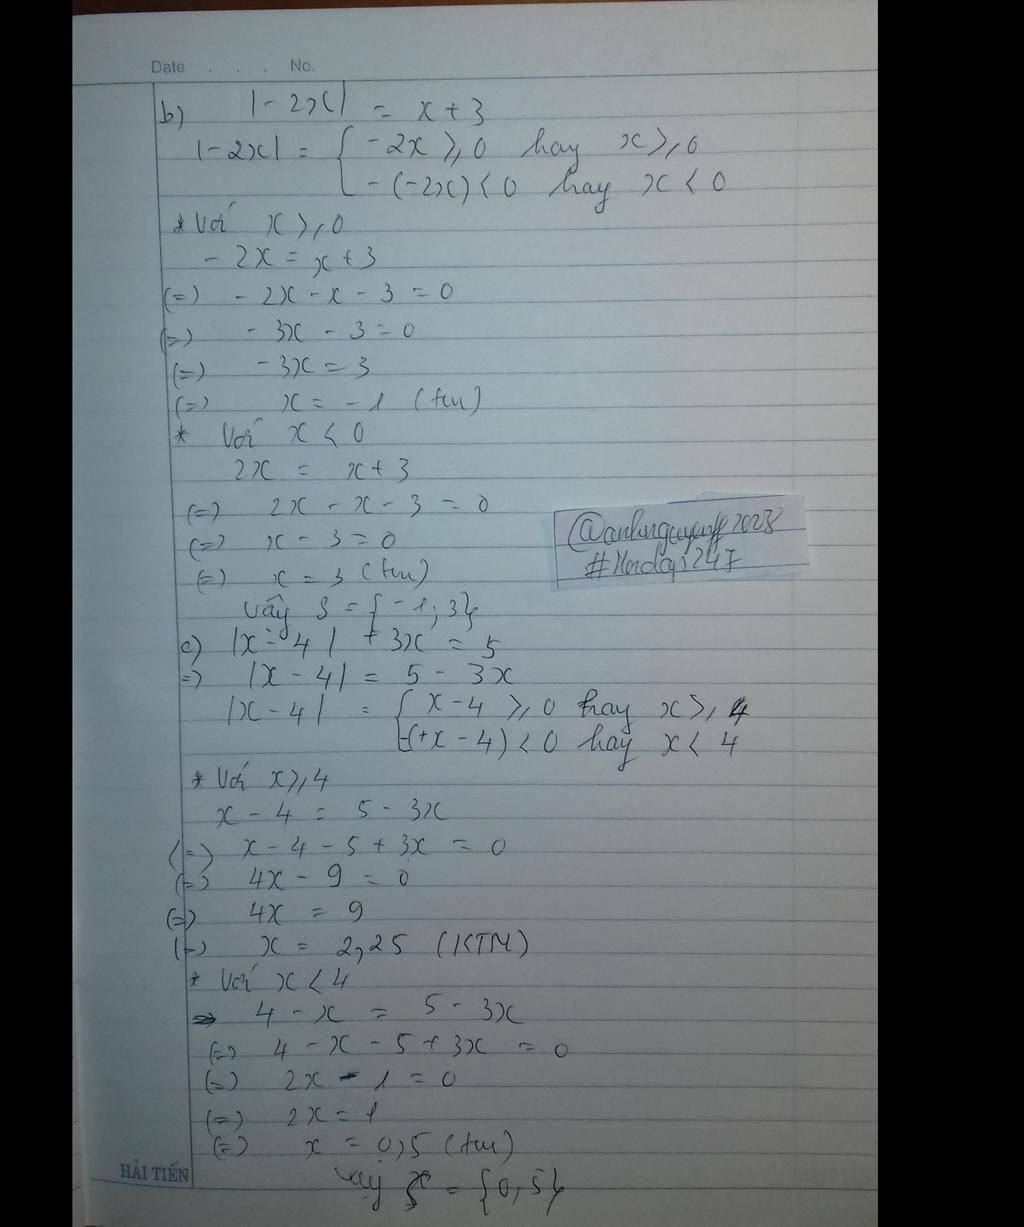 Date . . . No.
b) |-2x| = x + 3
|-2x| = { -2x ⩾ 0 hay x ⩾ 0
-(-2x) < 0 hay x < 0
* Với x ⩾ 0
- 2x = x + 3
(=) - 2x - x - 3 = 0
(=) - 3x - 3 = 0
(=) - 3x = 3
(=) x = -1 (tm)
* Với x < 0
2x = x + 3
(=) 2x - x - 3 = 0
(=) x - 3 = 0
(=) x = 3 (tm)
Vậy S = { -1; 3}
c) |x - 4| + 3x = 5
=) |x - 4| = 5 - 3x
|x - 4| = { x - 4 ⩾ 0 hay x ⩾ 4
-(+x - 4) < 0 hay x < 4
* Với x ⩾ 4
x - 4 = 5 - 3x
(=) x - 4 - 5 + 3x = 0
(=) 4x - 9 = 0
(=) 4x = 9
(=) x = 2,25 (KTM)
* Với x < 4
=> 4 - x = 5 - 3x
(=) 4 - x - 5 + 3x = 0
(=) 2x - 1 = 0
(=) 2x = 1
(=) x = 0,5 (tm)
Vậy = {0,5}
HẢI TIẾN